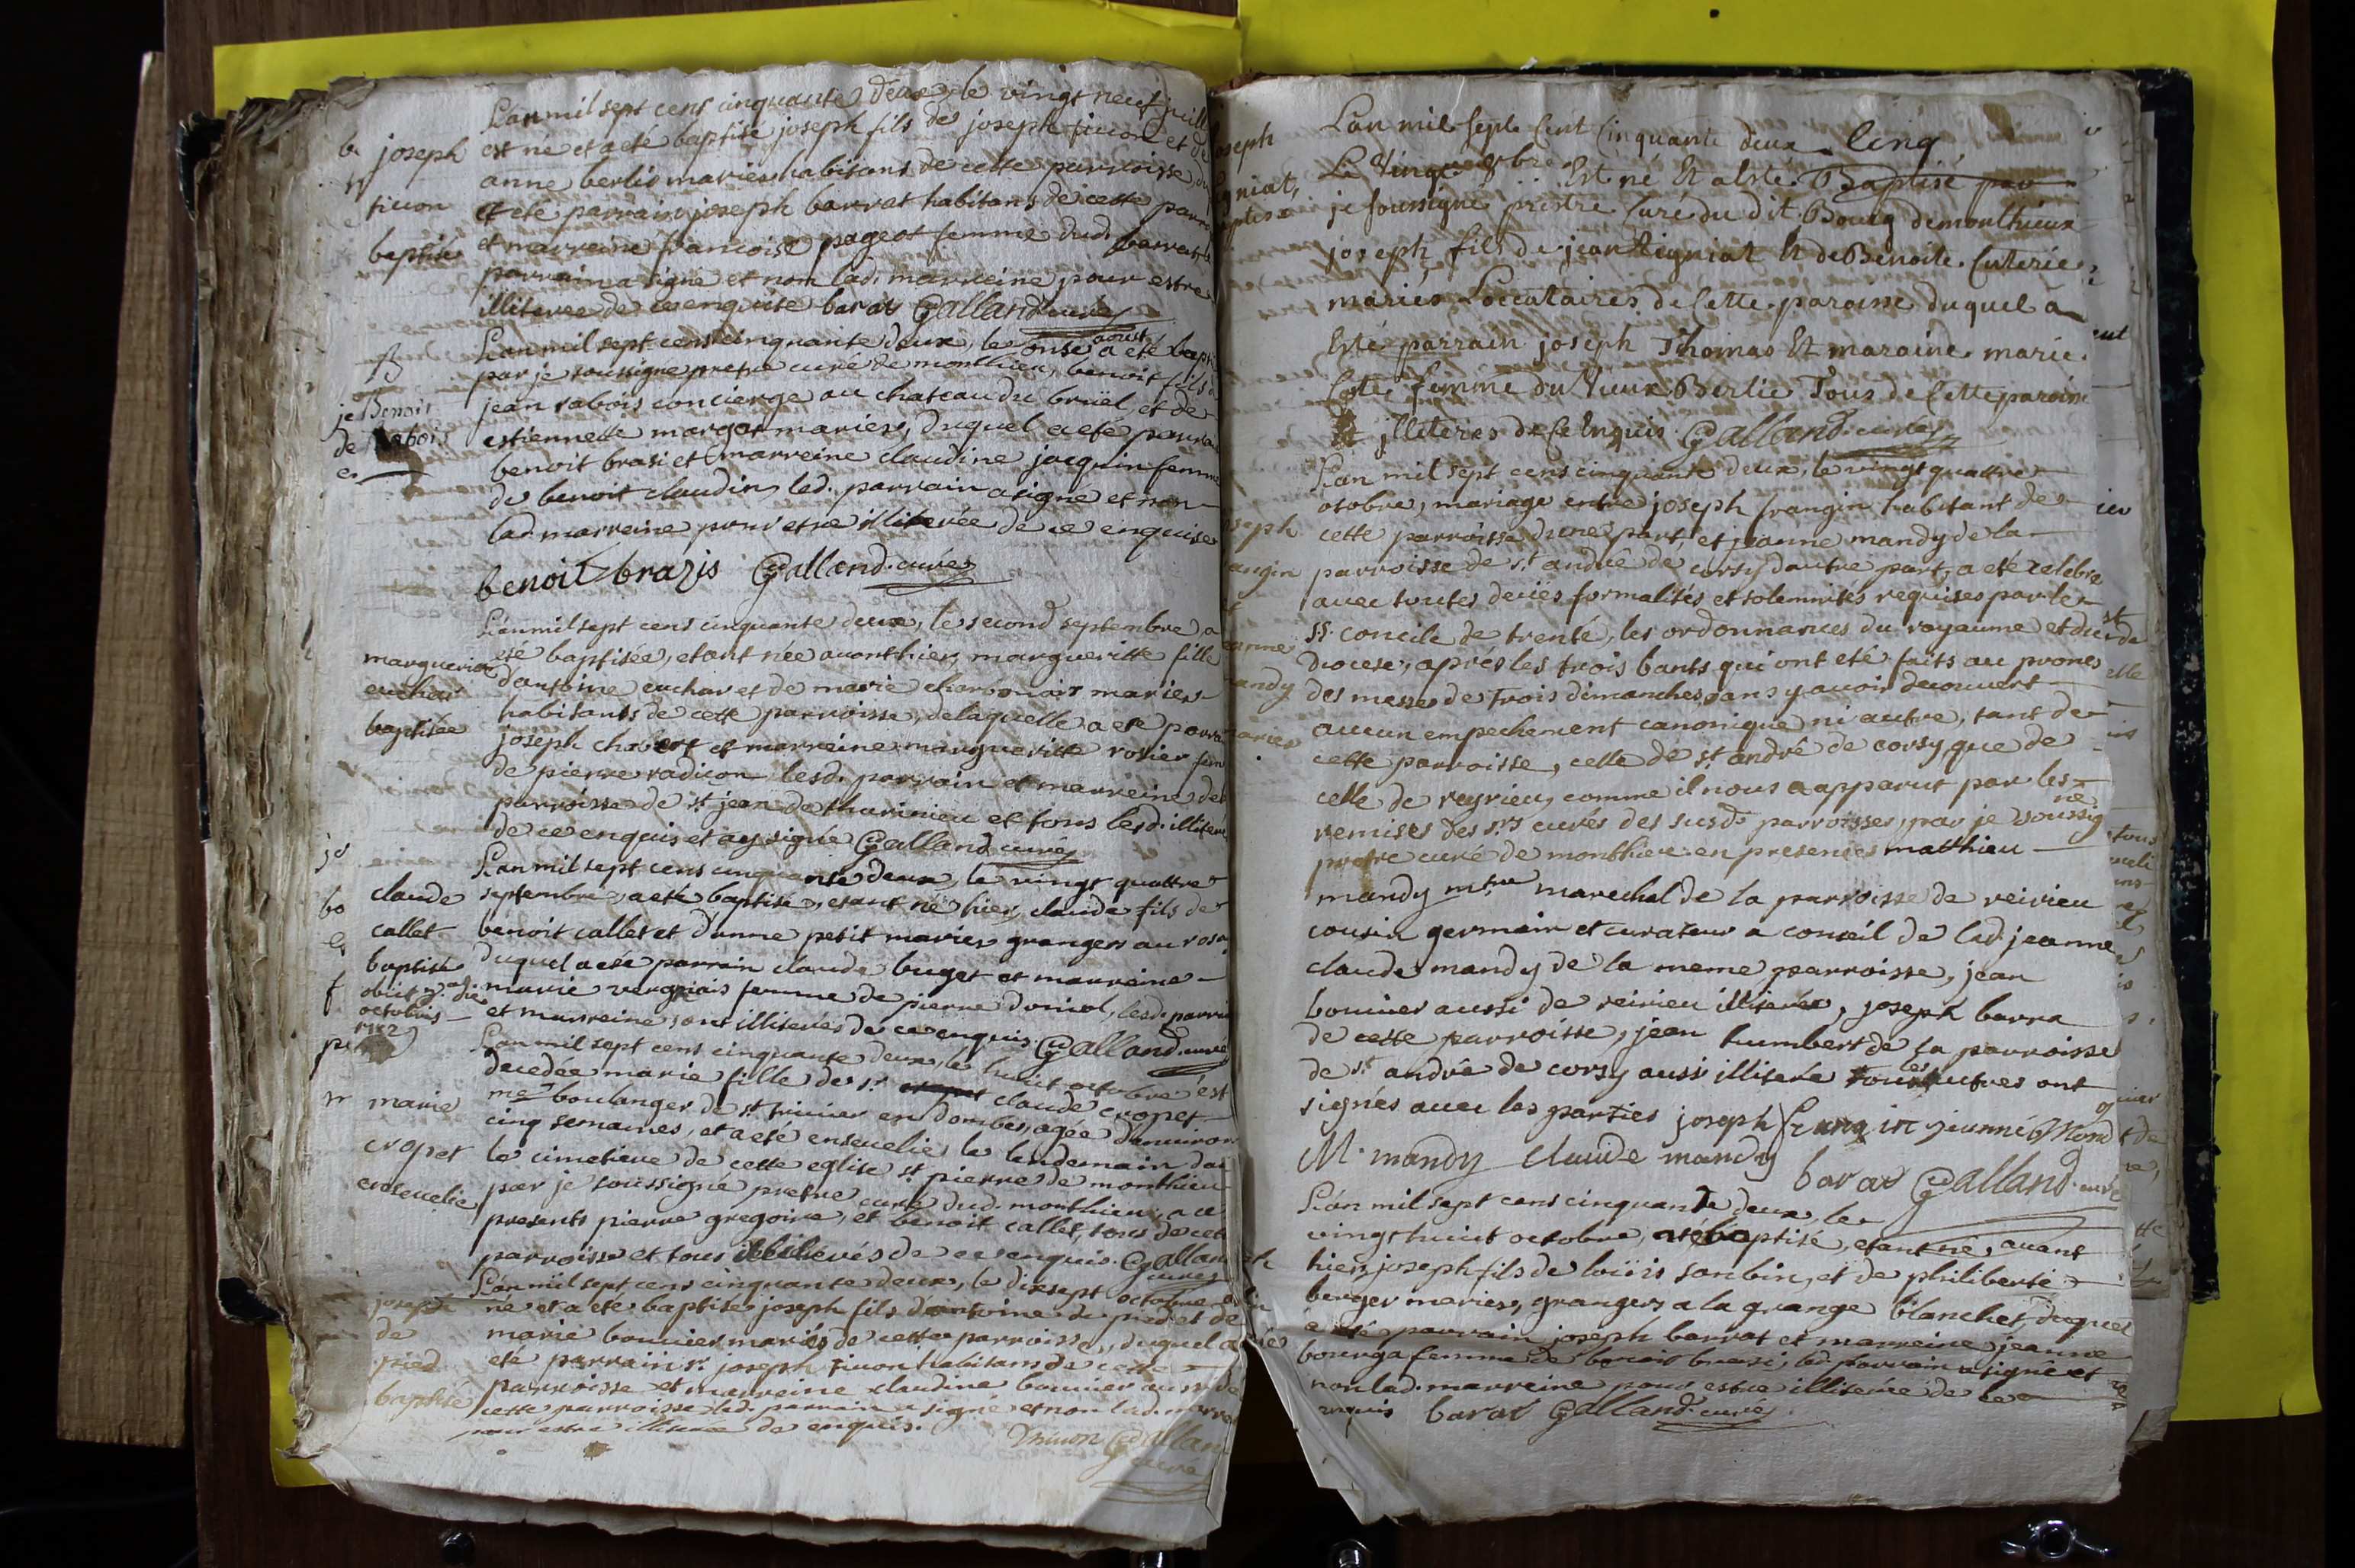 L'an mil sept cens cinquante deux le vingt neuf juill
est né et a eté baptisé joseph fils de joseph ficion et d
anne berlio mariés habitans de cette parroisse du
a eté parrain joseph barrat habitans de cette parr
et marreine francoise pageot femme dud. barrat le
parrain a signé et non lad. marreine pour estre
illiterée de ce enquise barat Galland curé
joseph
ficion
baptisé
L'an mil sept cens cinquante deux, le onse aoust a eté bapt
par je soussigné pretre curé de monthieu, benoit fils d
jean rabois concierge au chateau du bruel, et de
estiennette margot mariés, duquel a eté parrai
benoit brasi et marreine claudine jacquin femme
de benoit claudin, led. parrain a signé et non
lad. marreine pour estre illiterée de ce enquise
benoit brazis Galland curé
Benoit
rabois
L'an mil sept cens cinquante deux, le second septembre a
eté baptisée, etant née avanthier, margueritte fille
d'antoine euchar et de marie charbonois mariés
habitants de cette parroisse, de laquelle a eté parra
joseph chabert et marreine margueritte rosier fem
de pierre radicon lesd. parrain et marreine de
parroisse de st jean de thurinieu et tous lesd. illiteré
de ce enquis et ay signé Galland curé
margueritte
euchar
baptisée
L'an mil sept cens cinquante deux, le vingt quattre
septembre, a eté baptisé, etant né hier, claude fils de
benoit callet et d'anne petit mariés grangers au rosa
duquel a eté parrain claude buget et marreine
marie vergnais femme de pierre doniol, lesd. parrai
et marreine sont illiterés de ce enquis Galland curé
claude
callet
baptisé
obiit 7a die
octobris
1752
L'an mil sept cens cinquante deux, le huit octobre est
decedée marie fille de sr claude cropet
me boulanger de st trivier en dombes, agée d'environ
cinq semaines, et a eté ensevelie le lendemain da
le cimetiere de cette eglise st pierre de monthieu
par je soussigné pretre curé dud. monthieu, a ce
presents pierre gregoire, et benoit callet, tous de cet
parroisse et tous illiterés de ce enquis. Galland
curé
marie
cropet
ensevelie
L'an mil sept cens cinquante deux, le dixsept octobre
né et a eté baptisé joseph fils d'antoine de pied et de
marie bouvier mariés de cette parroisse, duquel a
eté parrain sr joseph ficion habitans de cette
parroisse et marreine claudine bouvier aussi de
cette parroisse led. parrain a signé et non lad. marre
pour estre illiterée de enquis.
Galland
curé
joseph
de
pied
baptisé
L'an mil septe Cent Cinquante deux
Le Vingt Cinq 8bre Est né Et a Esté Baptisé par
je soussigné prestre Curé du dit Bourg de monthieux
joseph fils de jean Rigniat Et de Benoite Cuterie
mariés Locataires de Cette paroisse duquel a
Esté parrain joseph Thomas Et maraine marie
Cote femme du vieux Berlie Tous de Cette paroisse
Et jlliteres de Ce Enquis Galland curé
L'an mil sept cens cinquante deux, le vingt quattre
octobre, mariage entre joseph frangin habitant de
cette parroisse d'une part, et jeanne mandy de la
parroisse de st andré de corsy d'autre part, a eté celebré
avec toutes deües formalités et solemnités requises par le
st concile de trente, les ordonnances du royaume et du
diocese, aprés les trois bants qui ont eté faits au prones
des messes de trois dimanches, sans y avoir decouvert
aucun empechement canonique ni autre, tant de
cette parroisse, celle de st andré de corsy, que de
celle de reyrieu, comme il nous a apparut par les
remises des srs curés des susds parroisses, par je soussigné
pretre curé de monthieu en presences matthieu
mandy mtre marechal de la parroisse de reirieu
cousin germain et curateur a conseil de lad. jeanne
claude mandy de la meme parroisse, jean
bouvier aussi de reirieu illiteré, joseph barra
de cette parroisse, jean humbert de la parroisse
de st andré de corsy aussi illiteré tous les autres ont
signés avec les parties joseph frangin jeanne Mand
M. mandy claude mandy
barat Galland curé
L'an mil sept cens cinquante deux, le
vingt huit octobre, a eté baptisé, etant né, avant
hier, joseph fils de loüis saubin, et de philiberte
berger mariés, grangers a la grange blanchet, duquel
a eté parrain joseph barrat et marreine jeanne
bourga femme de benoit brasi, led. parrain a signé et
non lad. marreine pour estre illiterée de ce
enquis barat Galland curé